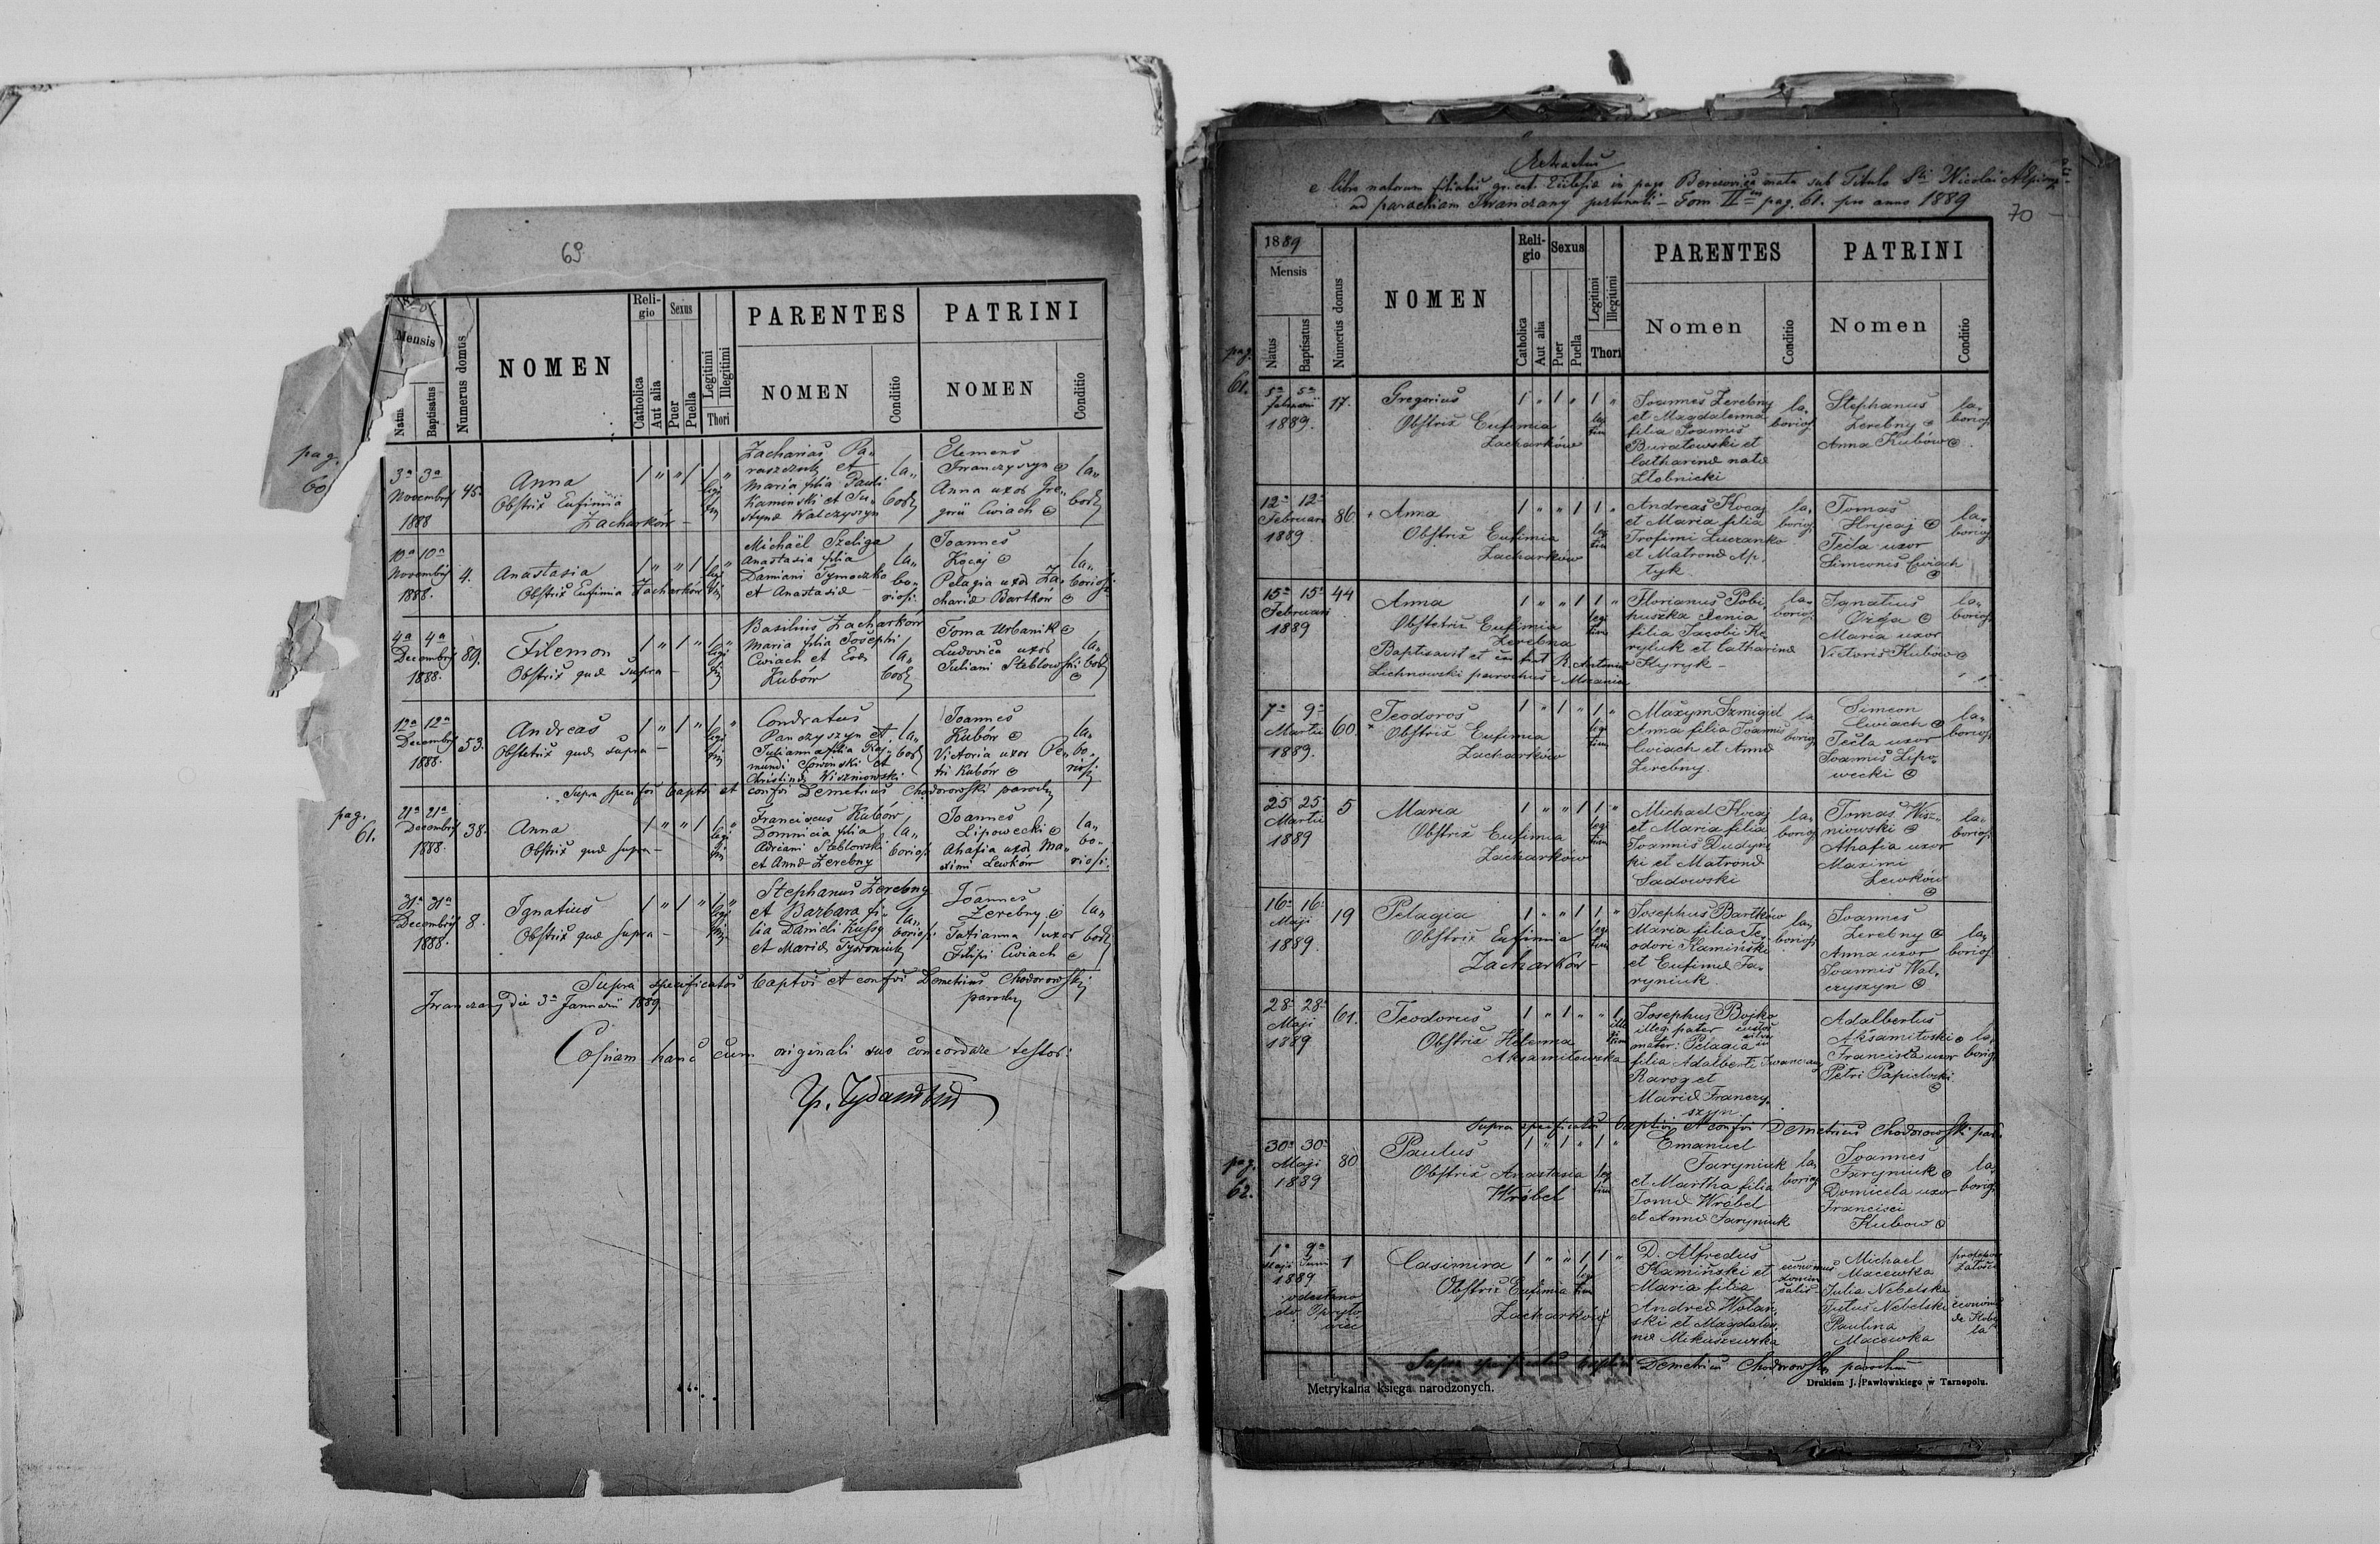 69
18
Mensis
Natus
Baptisatus
Numerus domus
NOMEN
Religio
Catholica
Aut alia
Sexus
Puer
Puella
Legitimi
Illegitimi
Thori
PARENTES
NOMEN
Conditio
PATRINI
NOMEN
Conditio
pag. 60
3a 3a
Novembris
1888
45.
Anna
Obstrix Eufimia
Zacharków
legi
tim
Zacharias Pa-
raszczuk et
Maria filia Pauli
Kaminski et Ju-
styna Walczyszyn
la-
bor
Clemens
Iwanczyszyn
Anna uxor Gre-
gorii Cwiach
la-
bor
10a 10a
Novembris
1888.
4.
Anastasia
Obstrix Eufimia Zacharków
legi
tim
Michaël Szeliga
Anastasia filia
Damiani Tymoczko
et Anastasia
la-
bo-
riosi
Joannes
Kocaj
Pelagia uxor Za-
charia Bartków
la-
boriosi
4a 4a
Decembris
1888.
89.
Filemon
Obstrix quae supra
legi
tim
Basilius Zacharków
Maria filia Josephi
Cwiach et Eva
Kubów
la-
bor
Toma Urbanik
Ludovica uxor
Juliani Stablowski
la-
bor
12a 12a
Decembris
1888.
53.
Andreas
Obstetrix quae supra
legi
tim
Condratus
Panczyszyn et
Julianna filia Raj-
mundi
Christina Wiszniowski
la-
bor
Joannes
Kubów
Victoria uxor Pe-
tri Kubów
la-
bo-
riosi
Supra specifos baptos et confos Demetrius Chodorowski parochus
pag. 61.
21a 21a
Decembris
1888.
38.
Anna
Obstrix quae supra
legi
tim
Franciscus Kubów
Domnicia filia
Adriani Stablowski
et Anna Zerebny
la-
boriosi
Joannes
Lipowecki
Ahafia uxor Ma-
ximi Lewków
la-
bo-
riosi
31a 31a
Decembris
1888.
8.
Ignatius
Obstrix quae supra
legi
tim
Stephanus Zerebny
et Barbara fi-
lia Danieli
et Maria
la-
boriosi
Joannes
Zerebny
Tatianna uxor
Filipi Cwiach
la-
bor
Supra specificatos baptos et confos Demetrius Chodorowski
parochus
Iwanczany die 3a Januarii 1889.
Copiam hanc cum originali suo concordare testor:
Extractus
e libro natorum filialis gr. cat. Ecclesia in pago Berizowica mała sub Titulo Sti Nicolai
ad parochiam Iwanczany pertinenti - Tom II pag. 61. pro anno 1889
70
1889
Mensis
Natus
Baptisatus
Numerus domus
NOMEN
Religio
Catholica
Aut alia
Sexus
Puer
Puella
Legitimi
Illegitimi
Thori
PARENTES
Nomen
Conditio
PATRINI
Nomen
Conditio
pag. 61.
5a 5a
Februarii
1889.
17.
Gregorius
Obstrix Eufimia
Zacharków
leg
tim
Joannes Zerebny
et Magdalenna
filia Joannis
Buratowski et
Catharina nata
Złobnicki
la-
borios
Stephanus
Zerebny
Anna Kubów
la-
borios
12a 12a
Februari
1889
86.
Anna
Obstrix Eufimia
Zacharków
leg
tim
Andreas Kocaj
et Maria filia
Trofimi Luczanko
et Matrona Ap-
tyk
la-
borios
Tomas
Hrycaj
Tecla uxor
Simeonis Cwiach
la-
borios
15a 15a
Februari
1889
44
Anna
Obstetrix Eufimia
Zerebna
Baptisavit et confirt R. Antonius
Lichnowski parochus
legi
tim
Florianus Pobi-
huszka Xenia
filia Jacobi Ke-
ryluk et Catharina
Hyryk
la-
borios
Ignatius
Maria uxor
Victoris Kubów
la-
borios
7a 9a
Martii
1889.
60.
Teodoros
Obstrix Eufimia
Zacharków
legi
tim
Maxym Szmigiel
Anna filia Joannis
Cwiach et Anna
Zerebny
la-
borios
Simeon
Cwiach
Tecla uxor
Joannis Lipo-
wecki
la-
borios
25 25
Martii
1889
5
Maria
Obstrix Eufimia
Zacharków
legi
tim
Michael Kocaj
et Maria filia
Joannis Dudyn-
ki et Matrona
Sadowski
la-
borios
Tomas Wisz-
niowski
Ahafia uxor
Maximi
Lewków
la-
borios
16a 16a
Maji
1889.
19
Pelagia
Obstrix Eufimia
Zacharków
legi
tim
Josephus Bartków
Maria filia Te-
odori Kamiński
et Eufimia Ta-
ryniuk
la-
borios
Joannes
Zerebny
Anna uxor
Joannis Wal-
czyszyn
la-
borios
28a 28a
Maji
1889
61.
Teodorus
Obstrix Helenna
Aksamitowska
ille
tim
Josephus Bojko
illeg. pater
mater: Pelagia
filia Adalberti
Rarog et
Maria Franczy-
szyn.
Adalbertus
Aksamitoski
Francisca uxor
Petri Papieloski
la-
borios
Supra specificatos baptos et confos Demetrius Chodorowski par.
pag. 62.
30a 30a
Maji
1889
80
Paulus
Obstrix Anastasia
Wróbel
leg
tim
Emanuel
Taryniuk
et Martha filia
Toma Wróbel
et Anna Taryniuk
la-
borios
Joannes
Taryniuk
Domicela uxor
Francisci
Kubow
la-
borios
1a 9a
Maji Junii
1889
odesłano
do
1
Casimira
Obstrix Eufimia
Zacharków
leg
tim
D. Alfredus
Kamiński et
Maria filia
Andrea Wolan-
ski et Magdale-
na Mikuszewska
economus
Michael
Macewka
Julia Nebelska
Titus Nebelski
Paulina
Macewka
Supra specificatos baptos Demetrius Chodorowski parochus
Metrykalna księga narodzonych.
Drukiem J. Pawłowskiego w Tarnopolu.